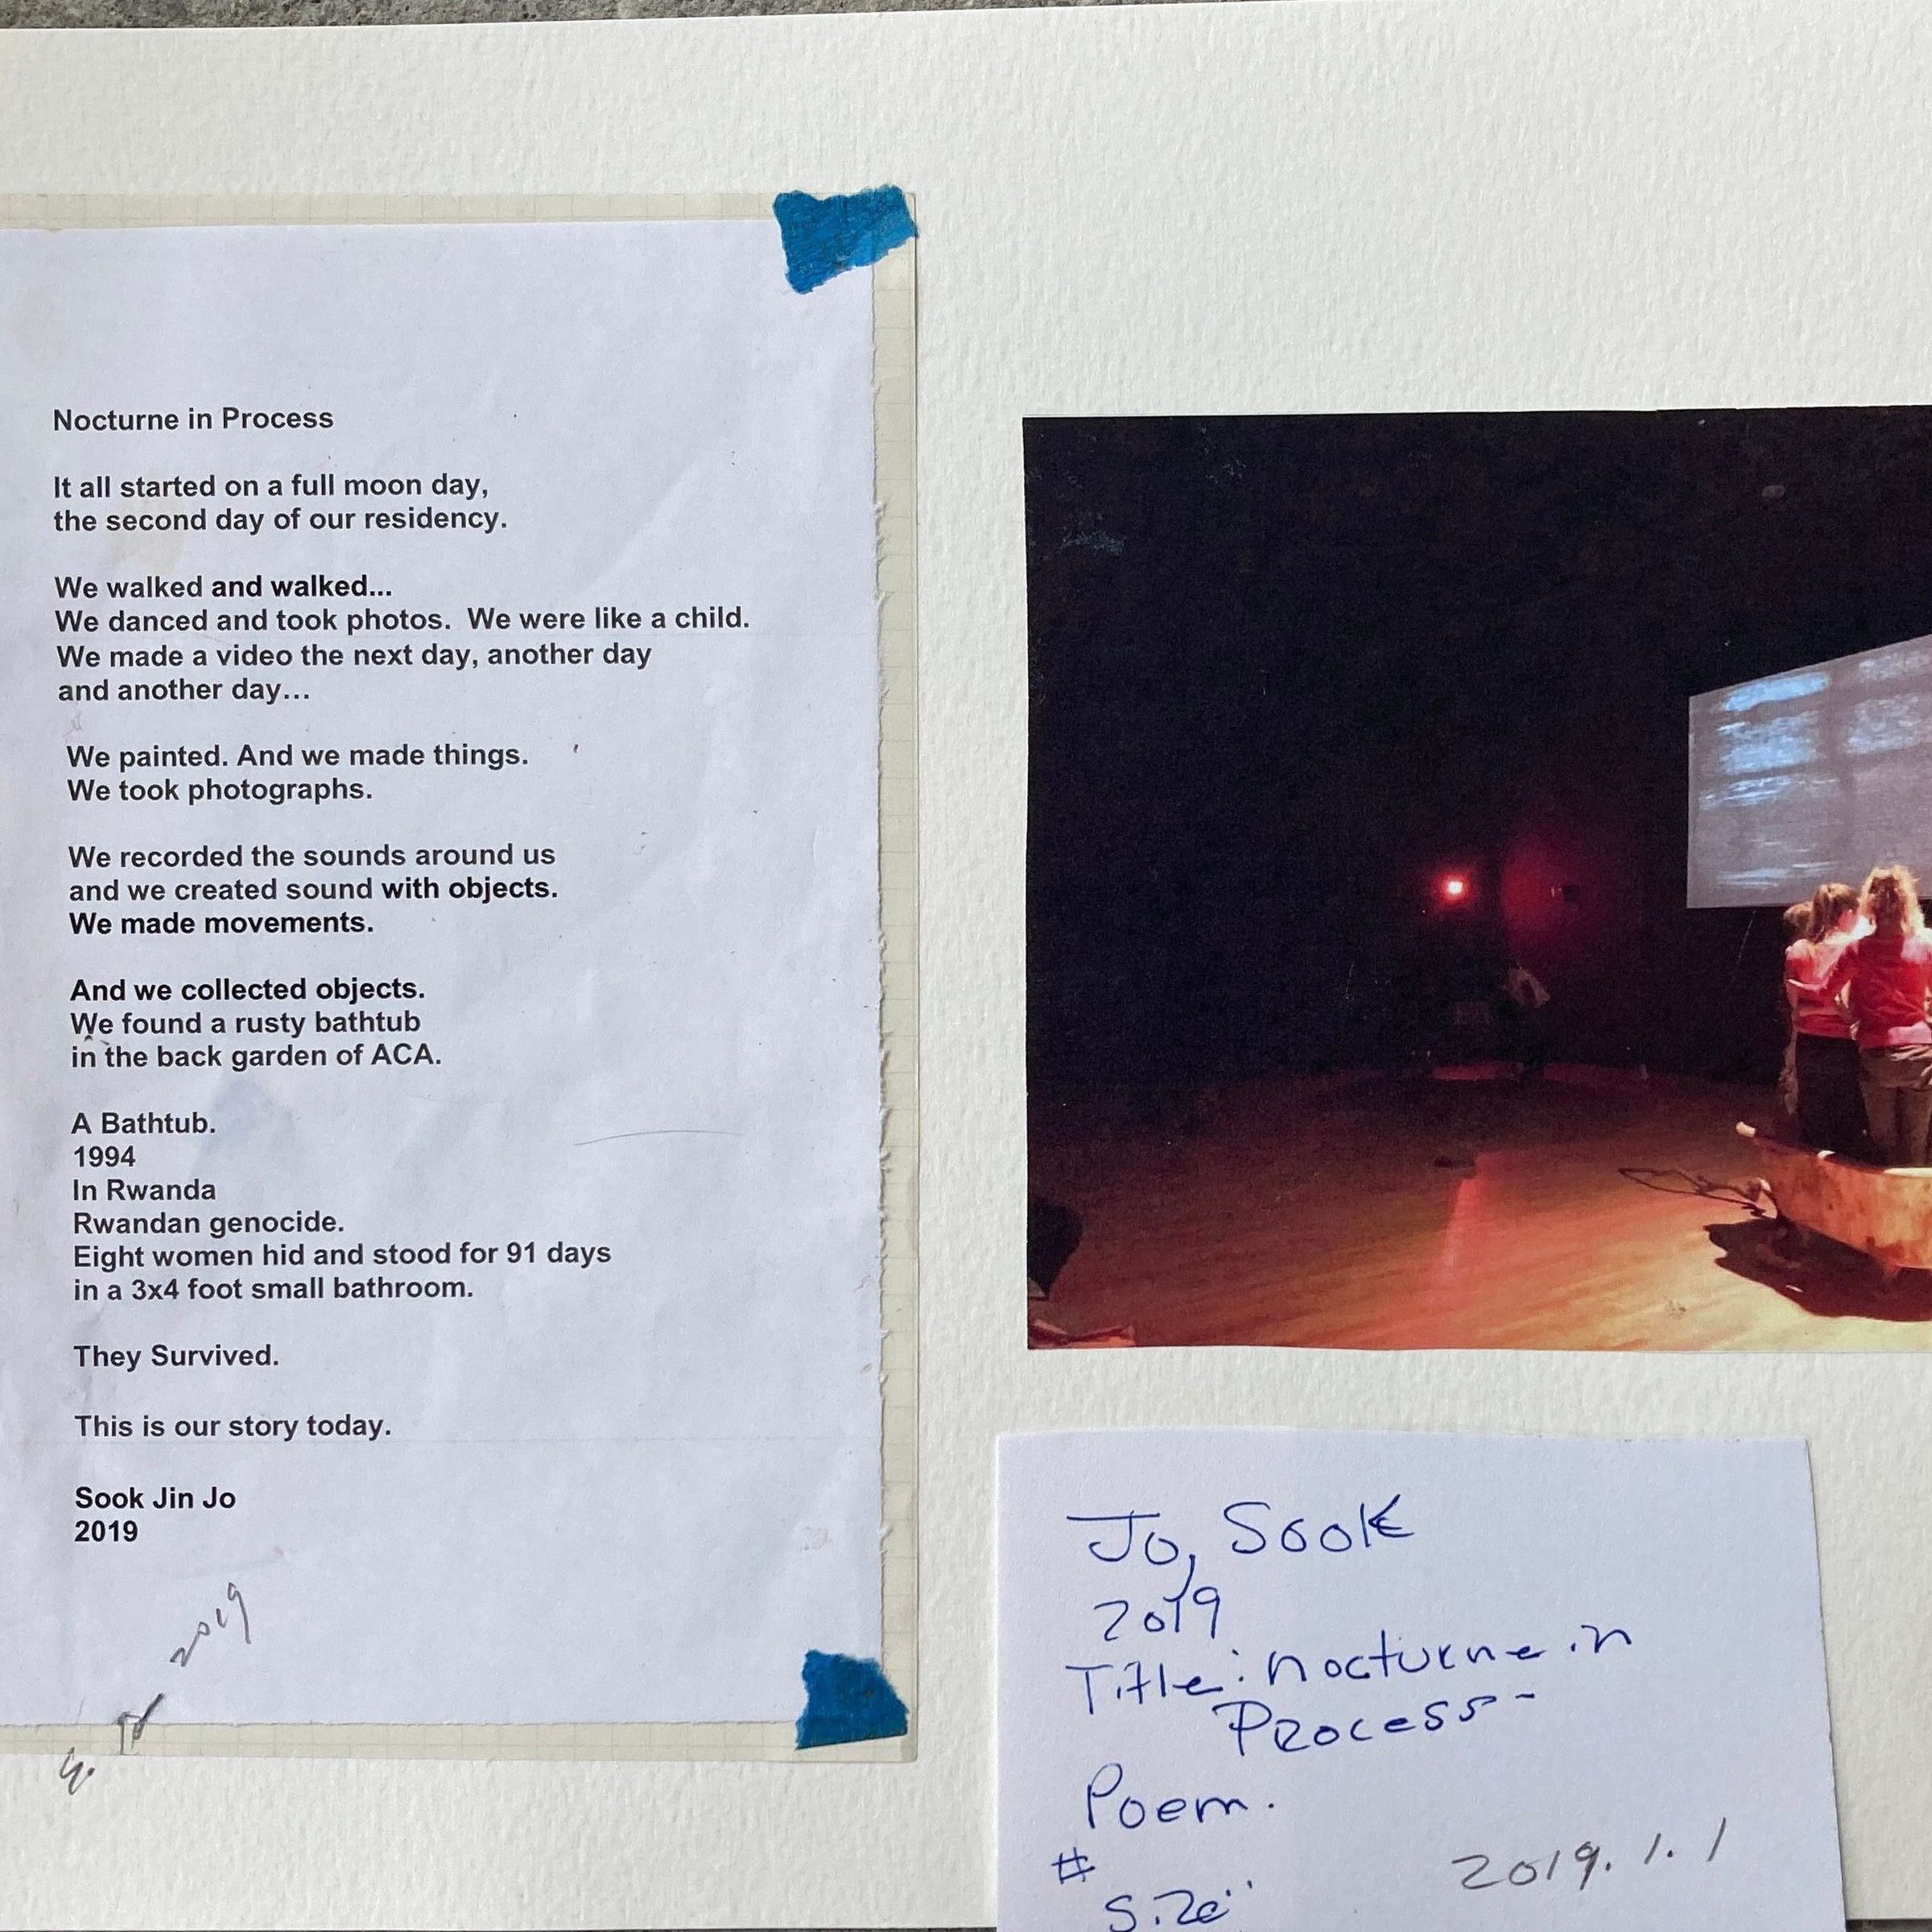 Nocturne in Process
It all started on a full moon day,
the second day of our residency.
We walked and walked...
We danced and took photos.  We were like a child.
We made a video the next day, another day
and another day...
We painted. And we made things.
We took photographs.
We recorded the sounds around us
and we created sound with objects.
We made movements.
And we collected objects.
We found a rusty bathtub
in the back garden of ACA.
A Bathtub.
1994
In Rwanda
Rwandan genocide.
Eight women hid and stood for 91 days
in a 3x4 foot small bathroom.
They Survived.
This is our story today.
Sook Jin Jo
2019
2019
Jo, Sook
2019
Title: nocturne in
Process-
Poem.
#
Size:
2019.1.1